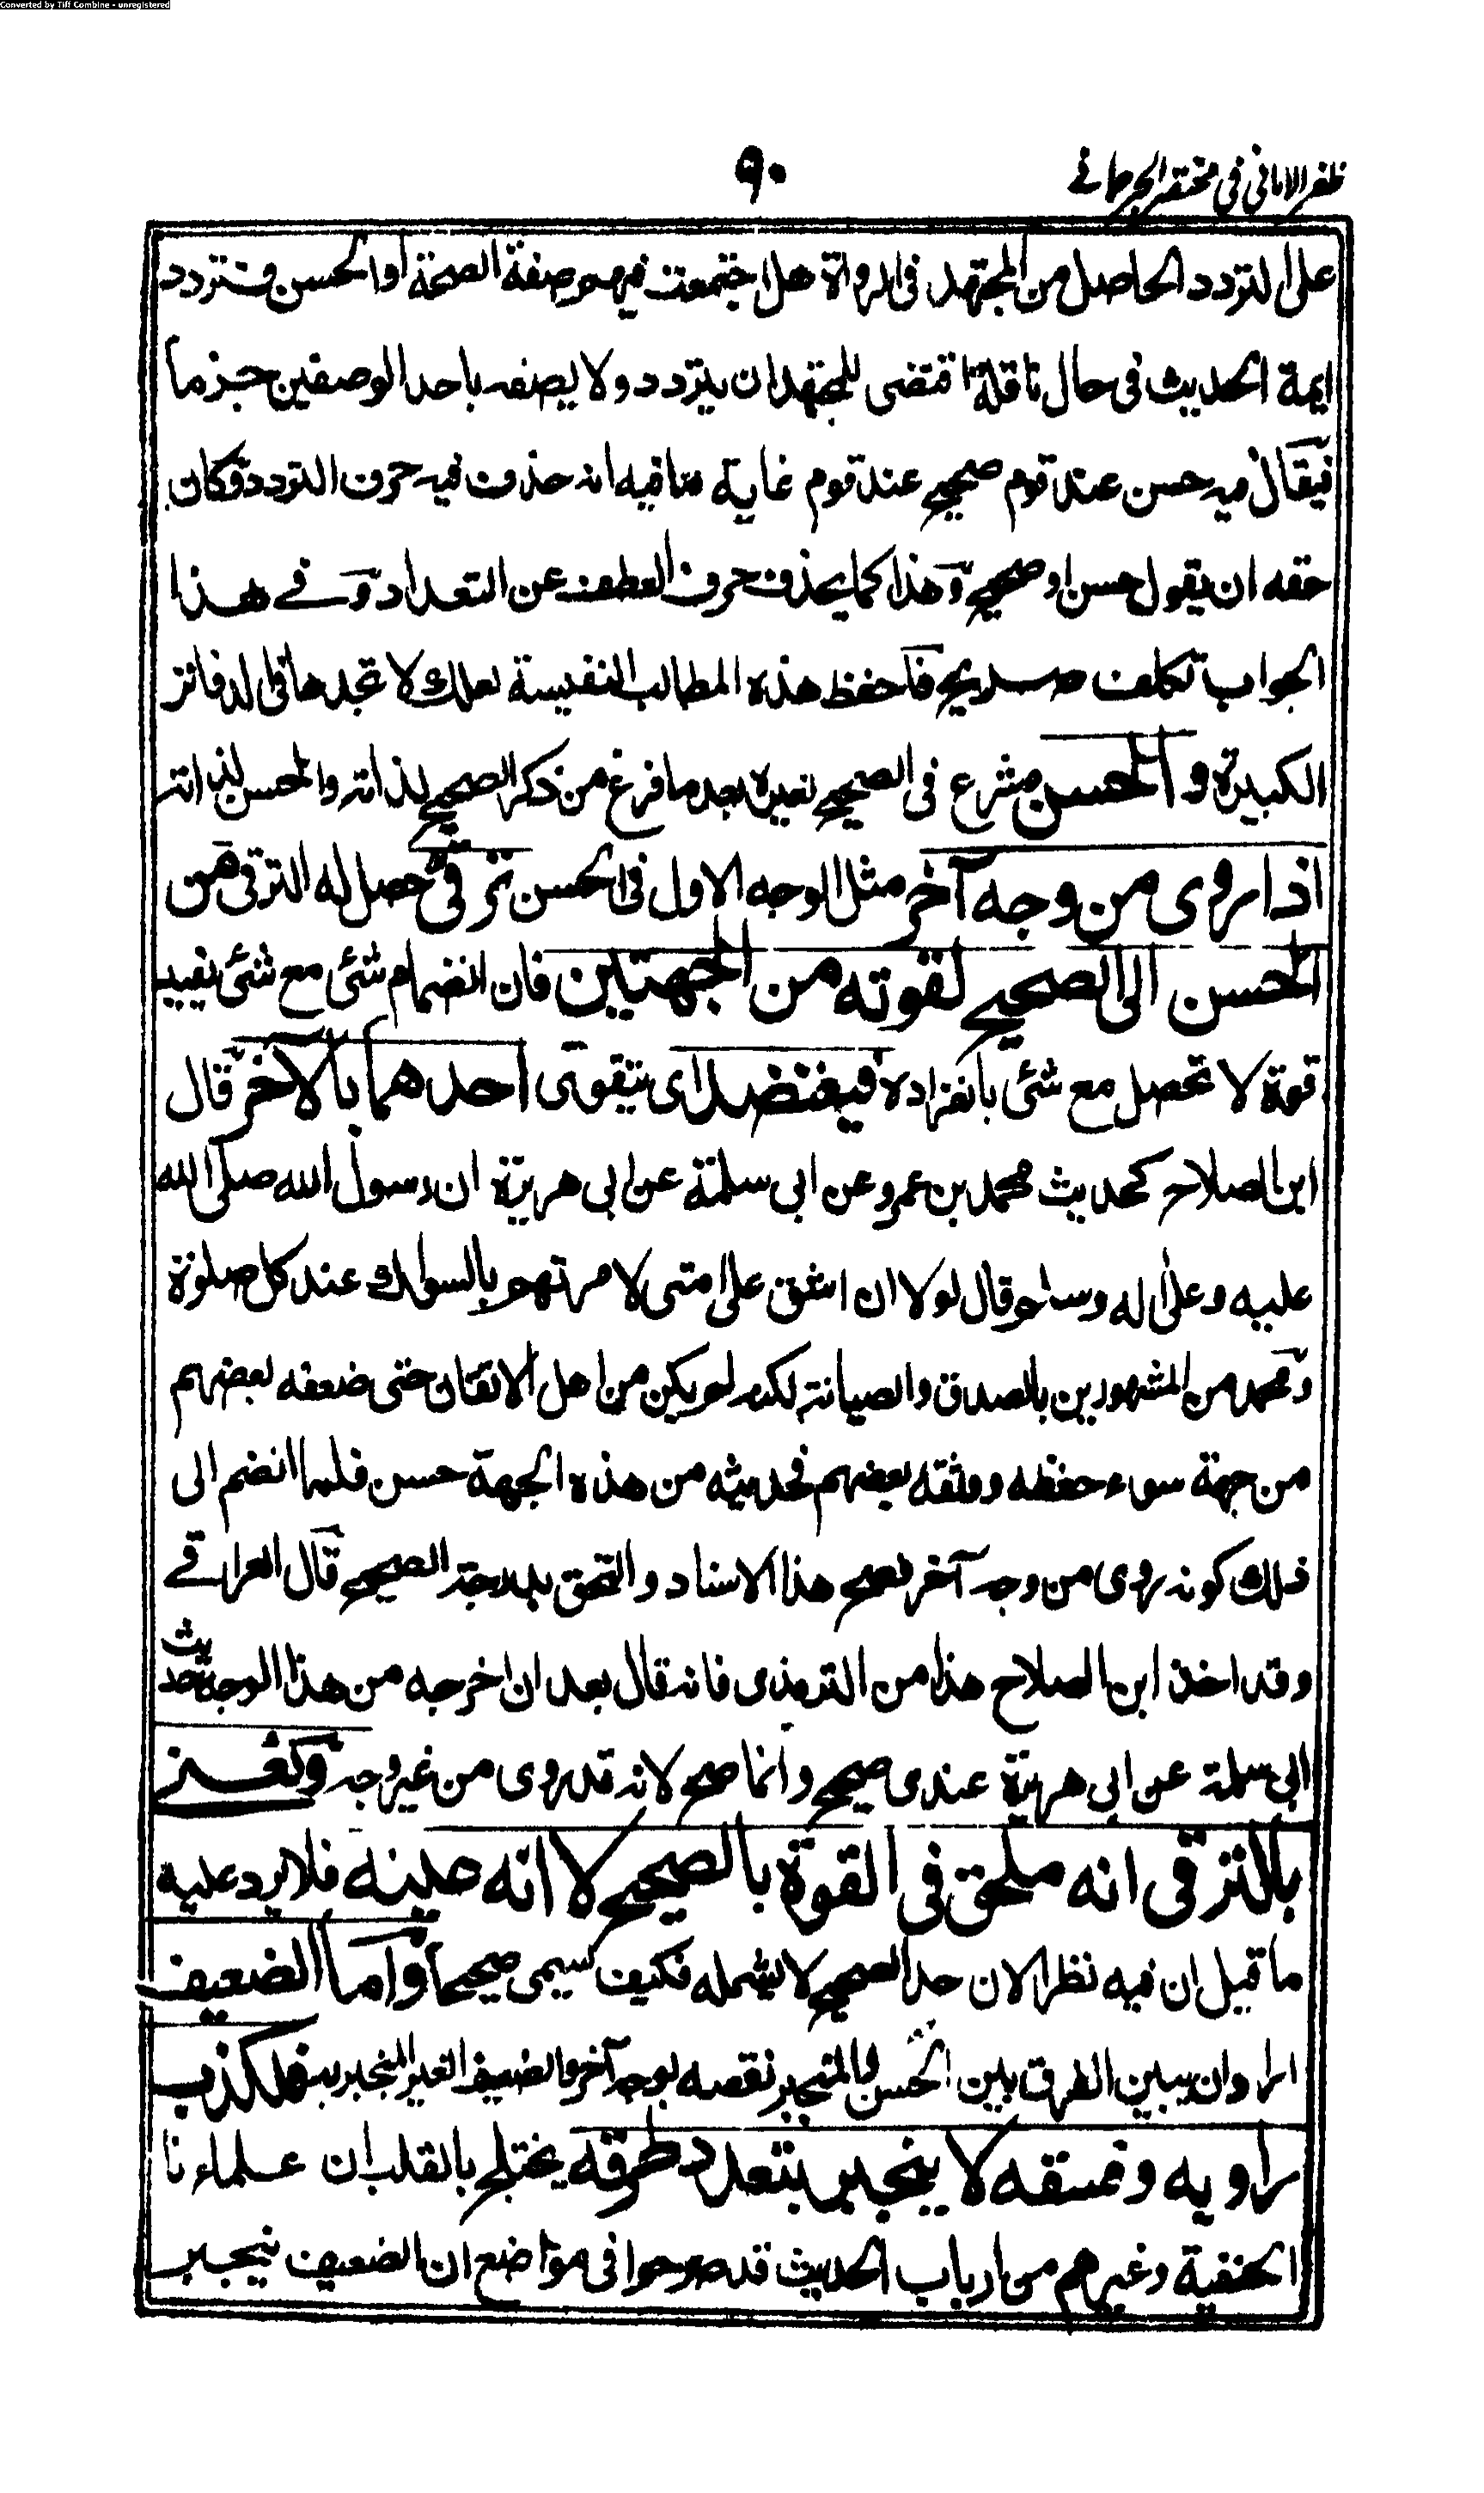 Converted by Tiff Combine - unregistered
ظفر الامانی فی مختصر الجرجانے
٩٠
على التردد الحاصل من المجتهد فى الرواة هل اجتمعت فيهم صفة الصحة او الحسن فتردد
ايمة الحديث فى حال ناقله اقتضى للمجتهد ان يتردد ولا يصفه باحد الوصفين جزما
فيقال فيه حسن عند قوم صحيح عند قوم غاية ما فيه انه حذف فيه حرف التردد وكان
حقه ان يقول حسن او صحيح وهذا كما يحذف حرف العطف عن التعداد وفے هذا
الجواب تكلف صريح فاحفظ هذه المطالب النفيسة لعلك لا تجدها فى الدفاتر
الكبيرة والحسن شرع فى الصحيح لغيره بعد ما فرغ من ذكر الصحيح لذاته والحسن لذاته
اذا روى من وجه آخر مثل الوجه الاول فى الحسن ترقى حصل له الترقى من
الحسن الى الصحيح لقوته من الجهتين فان انضمام شئ مع شئ يفيد
قوة لا تحصل مع شئ بانفراده فيعتضد اى يتقوى احدهما بالآخر قال
ابن الصلاح كحديث محمد بن عمرو عن ابى سلمة عن ابى هريرة ان رسول الله صلى الله
عليه وعلى اله وسلم قال لولا ان اشق على امتى لامرتهم بالسواك عند كل صلوة
ومحمد من المشهورين بالصدق والصيانة لكنه لم يكن من اهل الاتقان حتى ضعفه بعضهم
من جهة سوء حفظه ووثقه بعضهم فحديثه من هذه الجهة حسن فلما انضم الى
ذلك كونه روى من وجه آخر صح هذا الاسناد والتحق بدرجة الصحيح قال العراقے
وقد اخذ ابن الصلاح هذا من الترمذى فانه قال بعد ان اخرجه من هذا الوجه حديث
ابى سلمة عن ابى هريرة عندى صحيح وانما صح لانه قد روى من غير وجه ونعنے
بالترقى انه ملحق فى القوة بالصحيح لا انه عينه فلا يرد عليه
ما قيل ان فيه نظرا لان حد الصحيح لا يشمله فكيف يسمى صحيحا واما الضعيف
اراد ان يبين الفرق بين الحسن المنجبر نقصه بوجه آخر والضعيف الغير المنجبر به فلكذب
راويه وفسقه لا ينجبر بتعدد طرقه يختلج بالقلب ان علماءنا
الحنفية وغيرهم من ارباب الحديث قد صرحوا فى مواضع ان الضعيف ينجبر